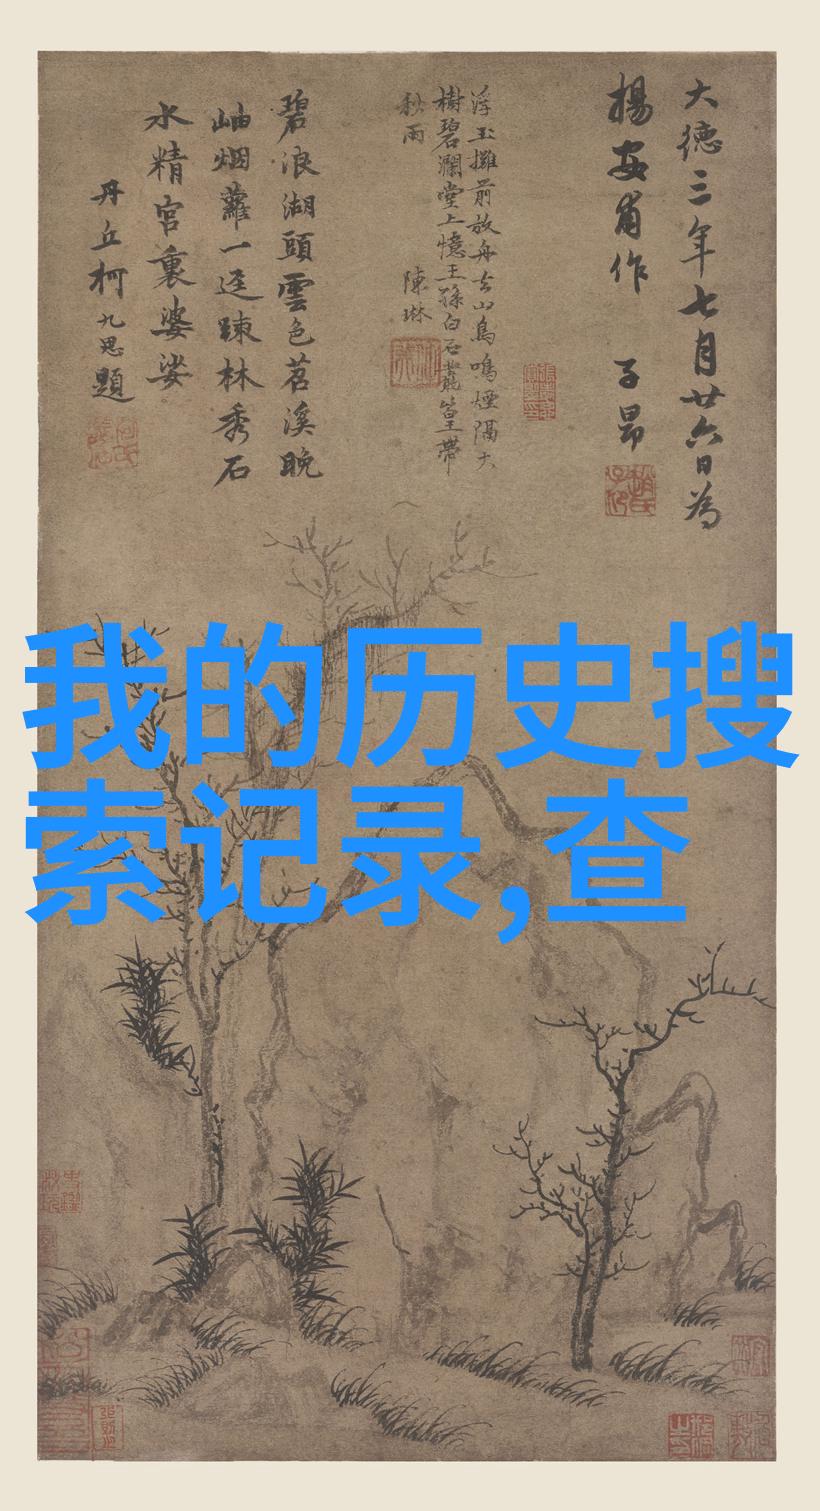 大德三年七月廿六日為
楊安甫作 子昂
浮玉攤前放舟去山鳥鳴煙隔大
樹碧瀾堂上憶王孫白石叢篁帶
秋雨 陳琳
碧浪湖頭雲色苕溪晚
岫烟蘿一逕踈林秀石
水精宮裏婆娑
丹丘柯九思題
我的历史搜
索记录,查